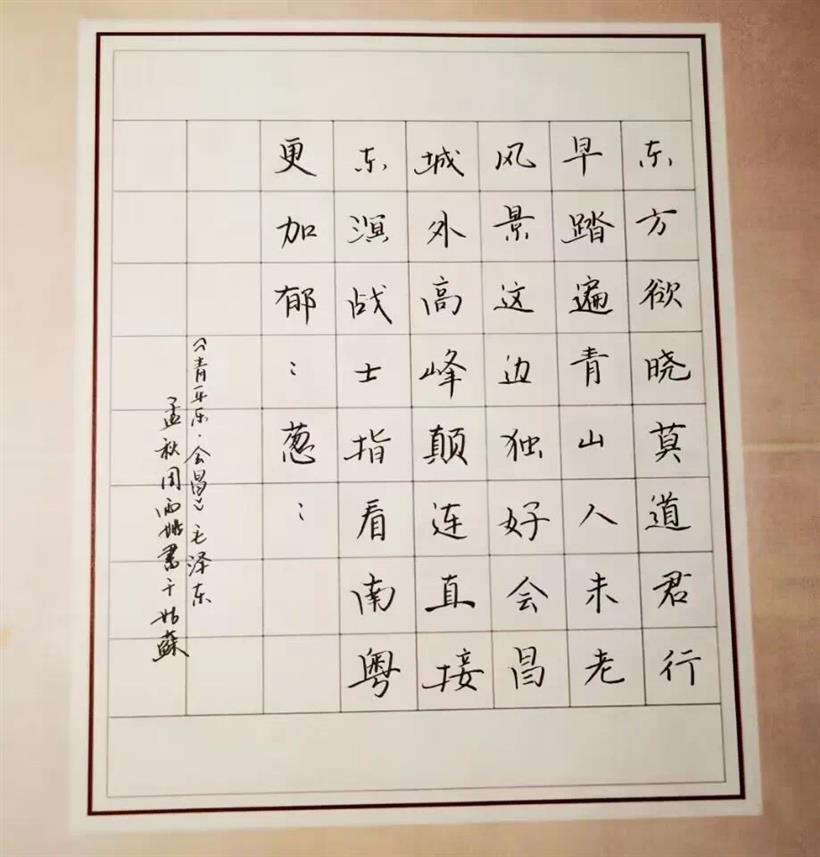 东方欲晓莫道君行
早踏遍青山人未老
风景这边独好会昌
城外高峰颠连直接
东溟战士指看南粤
更加郁：葱：
《青平乐·会昌》毛泽东
孟秋周雨姚書于姑蘇